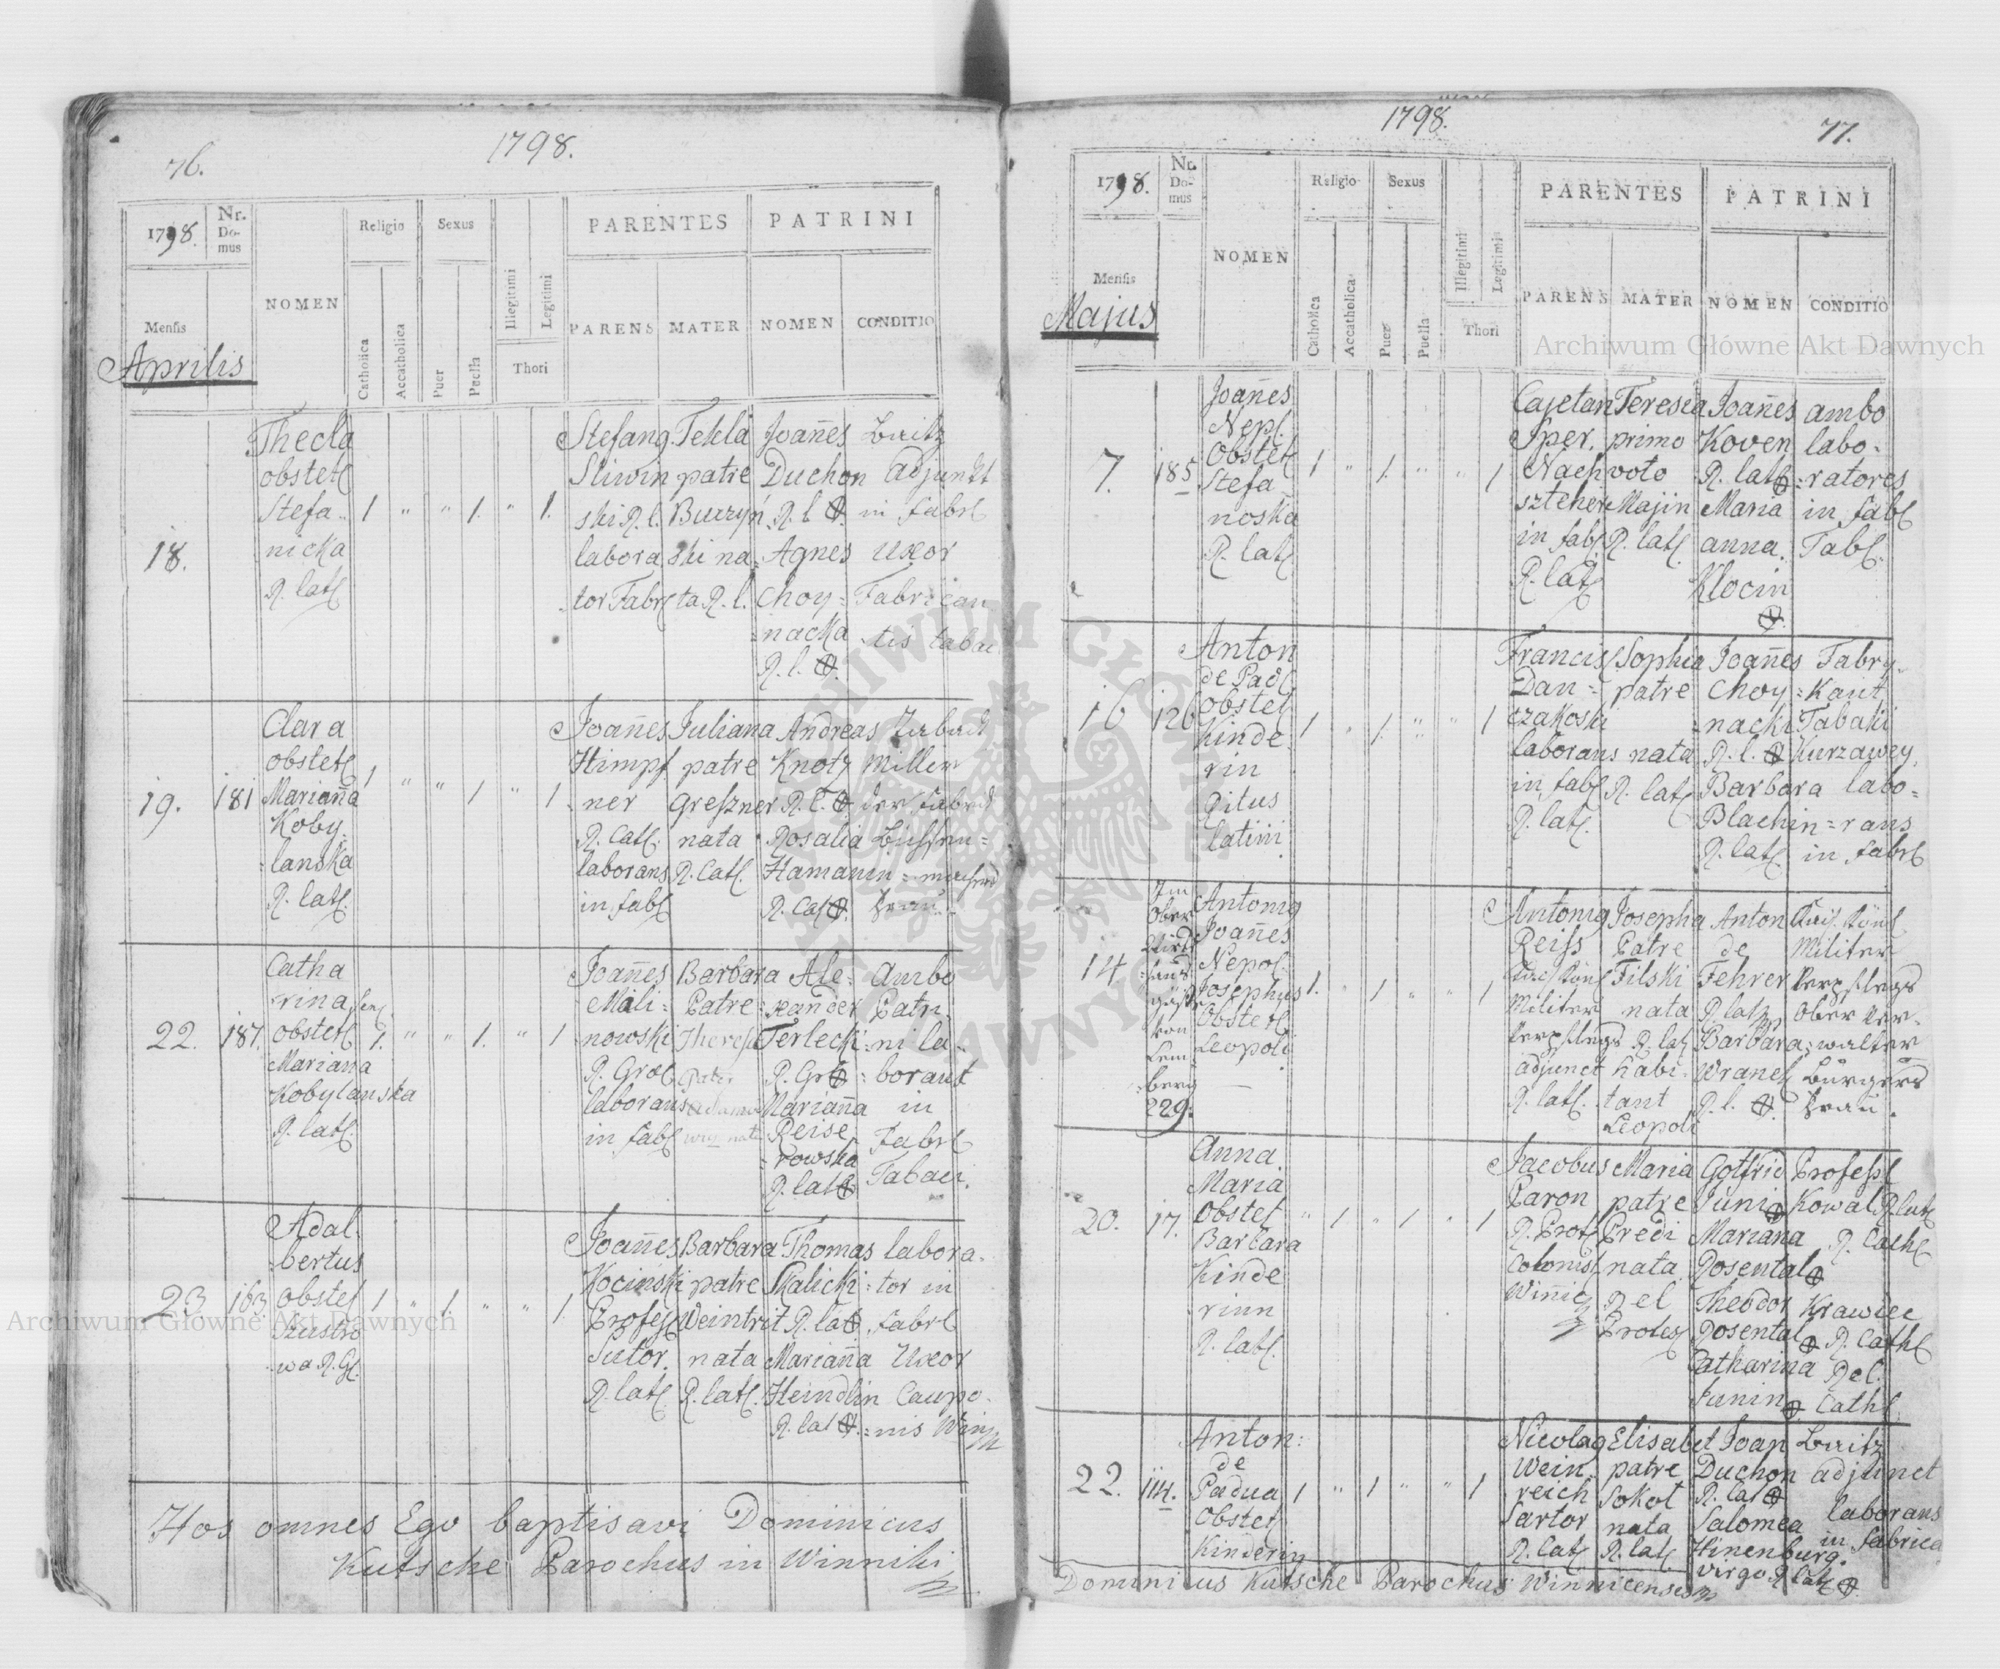 76.
1798.
1798.
Nr. Domus
NOMEN
Religio
Sexus
PARENTES
PATRINI
Mensis
Aprilis
Catholica
Accatholica
Puer
Puella
Illegitimi
Legitimi
Thori
PARENS
MATER
NOMEN
CONDITIO
18.
Thecla
obstet
Stefa
nicka
R. lat
1 " " 1. " 1.
Stefang
Sliwin
ski R. l.
labora
tor Fabr
Tekla
patre
Burzyń
ski na
ta R. l.
Joañes
Duchon
R. l.
Agnes
Choy=
nacka
R. l.
Adjunkt
in fabr
uxor
Fabrican
tis tabac
19.
181
Clara
obstet
Mariaña
Koby=
lanska
R. lat.
1 " " 1 " 1
Joañes
Himpf
ner
R. Cat.
laborans
in fab
Juliana
patre
Greszner
nata
R. Cat.
Andreas
Knotz
Rosalia
Hamanin
R. Cat
Miller
der Fabrik
Frau
22.
187.
Catha
rina
obstet
Mariana
Kobylanska
R. lat.
1. " " 1. " 1
Joañes
Mali=
nowski
R. Graec
laborans
in fab
Barbara
Patre
Ale=
xander
Terlecki
R. Gr
Mariaña
Reise
rowska
R. lat
Ambo
Patri
ni la=
borant
in
Fabr
Tabaci.
23.
163
Adal
bertus
obstet
Szustro
wa R. G.
1 " 1. " " 1.
Joañes
Kocinski
Profes
Sutor.
R. lat
Barbara
patre
Weintrit
nata
R. lat.
Thomas
Skalicki
R. lat
Mariaña
Heindlin
R. lat
labora=
tor in
fabr
Uxor
Caupo=
nis Win
Hos omnes Ego baptisavi Dominicus
Kutsche Parochus in Winniki
1798.
77.
1798.
Nr. Domus
NOMEN
Religio
Sexus
PARENTES
PATRINI
Mensis
Majus
Catholica
Accatholica
Puer
Puella
Illegitimi
Legitimi
Thori
PARENS
MATER
NOMEN
CONDITIO
7.
185
Joañes
Nepl
Obstet
Stefa
noska
R. lat
1 " 1. " " 1
Cajetan
Sper.
Nach
sztehere
in fab
R. lat
Teresia
primo
voto
Majin
R. lat
Joañes
Koven
R. lat
Maria
anna
Klocin
ambo
labo=
ratores
in fab
Tab.
16
126
Anton
de Pad
obstet
Kinde
rin
Ritus
latini
1 " 1. " " 1
Francis
Dan=
czakoski
laborans
in fab
R. lat.
Sophia
patre
nata
R. lat
Joañes
Choy=
nacki
R. l.
Barbara
Blachin
R. lat
Fabry
kant
Tabaki
Kurzawey,
labo=
rans
in fabr
14.
Im
Ober
von
Lem
berg
229.
Antonig
Joañes
Nepol.
Josephus
Obstet
Leopoli
1. " 1 " " 1
Antonig
Reiss
Militer
Verpflegs
adjunct
R. lat.
Josepha
Patre
Filski
nata
R. lat
habi
tant
Leopoli
Anton
de
Fehrer
R. lat
Barbara
Wranek
R. l.
Militer
Verpflegs
Ober Ver=
walter
Bürgers
Frau.
20.
17.
Anna
Maria
Obstet
Barbara
Kinde
rinn
R. lat.
" 1. " 1 " 1
Jacobus
Baron
R. Prot
Colonist
Winnic
Maria
patre
Predi
nata
Rel
Protes
Gotfrid
Juni
Mariana
Rosental
Theodor
Rosental
Catharina
Junin
Profess
Kowal
R. Cath
Krawiec
R. Cath
Rel.
Cath
22.
114.
Anton:
de
Padua
Obstet
Kinderin
1 " 1 " " 1
Nicolag
Wein
reich
Sartor
R. Cat
Elisabet
patre
Sokol
nata
R. lat
Joan
Duchon
R. lat
Salomea
Hinenburg.
Virgo R. lat
adjunct
laborans
in fabrica
Dominicus Kutsche Parochus Winnicensis
Archiwum Główne Akt Dawnych
Archiwum Główne Akt Dawnych